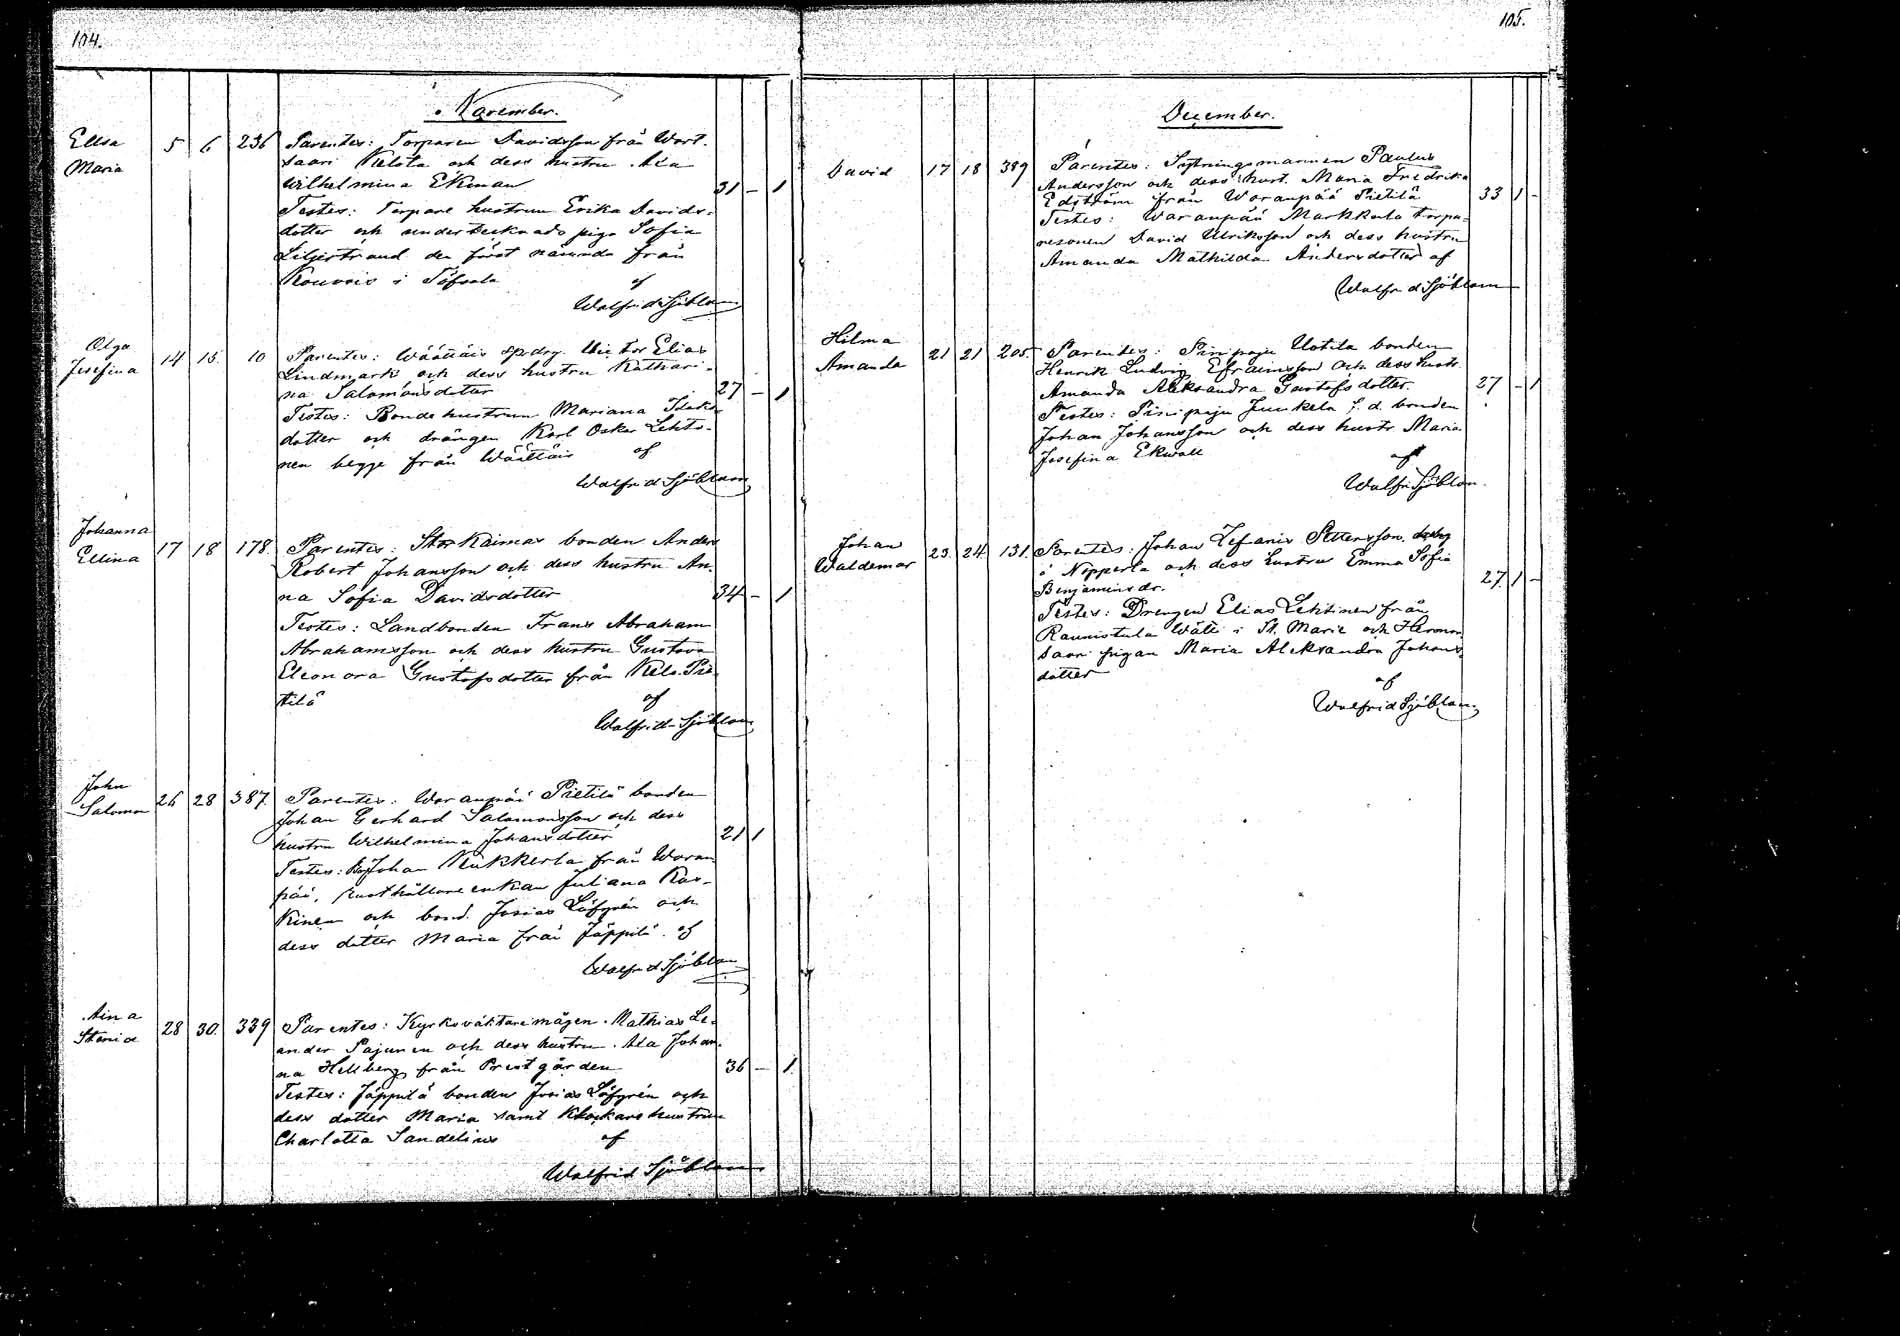 104.
November.
Ellsa 5 6 236 Parentes: Torparen Davidsson från Wart-
Maria saari Kelota och dess hustru Ada
Wilhelmina Ekman 31 – 1
Testes: Torpare hustrun Erika Davids-
dotter och undertecknads piga Sofia
Liljestrand den först nämnda från
Kouvois i Töfsala af
Walfrid Sjöblom
Olga 14 15 10 Parentes: Wäättäis spdrg. Victor Elias
Josefina Lindmark och dess hustru Kathari-
na Salomonsdotter 27 – 1
Testes: Bonde hustrun Mariana Isaks-
dotter och drängen Karl Oskar Lehto-
nen begge från Wäättäis af
Walfrid Sjöblom
Johanna 17 18 178. Parentes: Storkaimar bonden Anders
Ellina Robert Johansson och dess hustru An-
na Sofia Davidsdotter 34 – 1
Testes: Landbonden Frans Abraham
Abrahamsson och dess hustru Gustava
Eleonora Gustafsdotter från Kela Pie-
tilä af
Walfrid Sjöblom
John 26 28 387. Parentes: Woranpää Pietilä bonden
Salomon Johan Gerhard Salomonsson och dess
hustru Wilhelmina Johansdotter 21 1
Testes: Johan Kukkerla från Woran-
pää, rusthållare enkan Juliana Kos-
kinen och bond. Josias Löfgrén och
dess dotter Maria från Jäppilä. af
Walfrid Sjöblom
Aina 28 30. 339 Parentes: Kyrkoväktaremågen Mathias Le-
Stenia ander Pajunen och dess hustru Ada Johan-
na Hellberg från Prestgården 36 – 1
Testes: Jäppilä bonden Josias Löfgrén och
dess dotter Maria samt Klockarehustrun
Charlotta Sandelius af
Walfrid Sjöblom
105.
December.
David 17 18 389 Parentes: Sytningsmannen Paulus
Andersson och dess hust. Maria Fredrika
Edström från Woranpää Pietilä 33 1 –
Testes: Woranpää Markkula torpa-
resonen David Ulriksson och dess hustru
Amanda Mathilda Andersdotter af
Walfrid Sjöblom
Hilma 21 21 205. Parentes: Piripoju Uotila bonden
Amanda Henrik Ludvig Efraimsson och dess hustr.
Amanda Aleksandra Gustafsdotter. 27 – 1
Testes: Piripoju Junkela f. d. bonden
Johan Johansson och dess hustr. Maria
Josefina Ekwall af
Walfr. Sjöblom
Johan 23. 24. 131. Parentes: Johan Zefanias Pettersson
Waldemar i Nopperla och dess hustru Emma Sofia
Benjaminsdr. 27. 1 –
Testes: Drengen Elias Lehtinen från
Raunistula Wäli i St. Marie och Hermon-
saari pigan Maria Aleksandra Johans-
dotter af
Walfrid Sjöblom